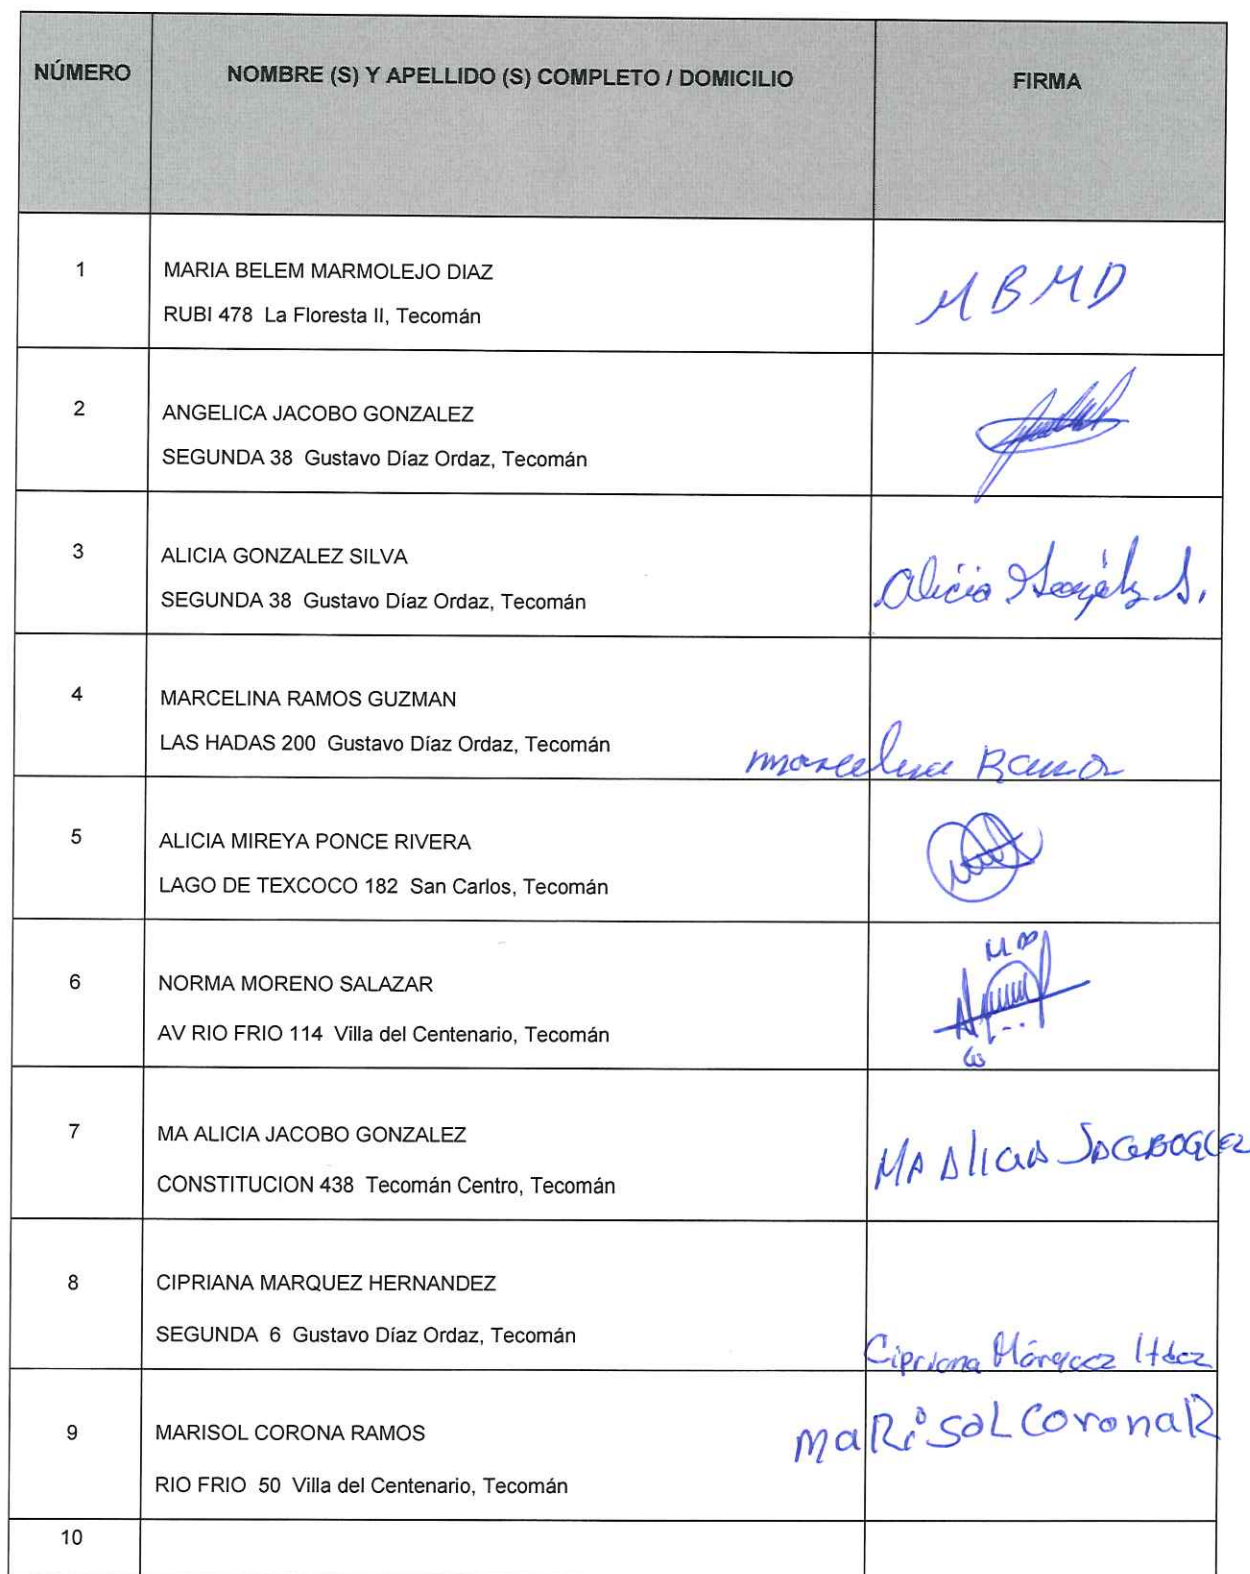 NÚMERO NOMBRE (S) Y APELLIDO (S) COMPLETO / DOMICILIO FIRMA
1 MARIA BELEM MARMOLEJO DIAZ MBMD
RUBI 478 La Floresta II, Tecomán
2 ANGELICA JACOBO GONZALEZ
SEGUNDA 38 Gustavo Díaz Ordaz, Tecomán
3 ALICIA GONZALEZ SILVA
SEGUNDA 38 Gustavo Díaz Ordaz, Tecomán Alicia S.
4 MARCELINA RAMOS GUZMAN
LAS HADAS 200 Gustavo Díaz Ordaz, Tecomán
5 ALICIA MIREYA PONCE RIVERA
LAGO DE TEXCOCO 182 San Carlos, Tecomán
6 NORMA MORENO SALAZAR
AV RIO FRIO 114 Villa del Centenario, Tecomán
7 MA ALICIA JACOBO GONZALEZ MA Alicia
CONSTITUCION 438 Tecomán Centro, Tecomán
8 CIPRIANA MARQUEZ HERNANDEZ
SEGUNDA 6 Gustavo Díaz Ordaz, Tecomán
Cipriana Márquez Hdez
9 MARISOL CORONA RAMOS maRisoL Corona R
RIO FRIO 50 Villa del Centenario, Tecomán
10